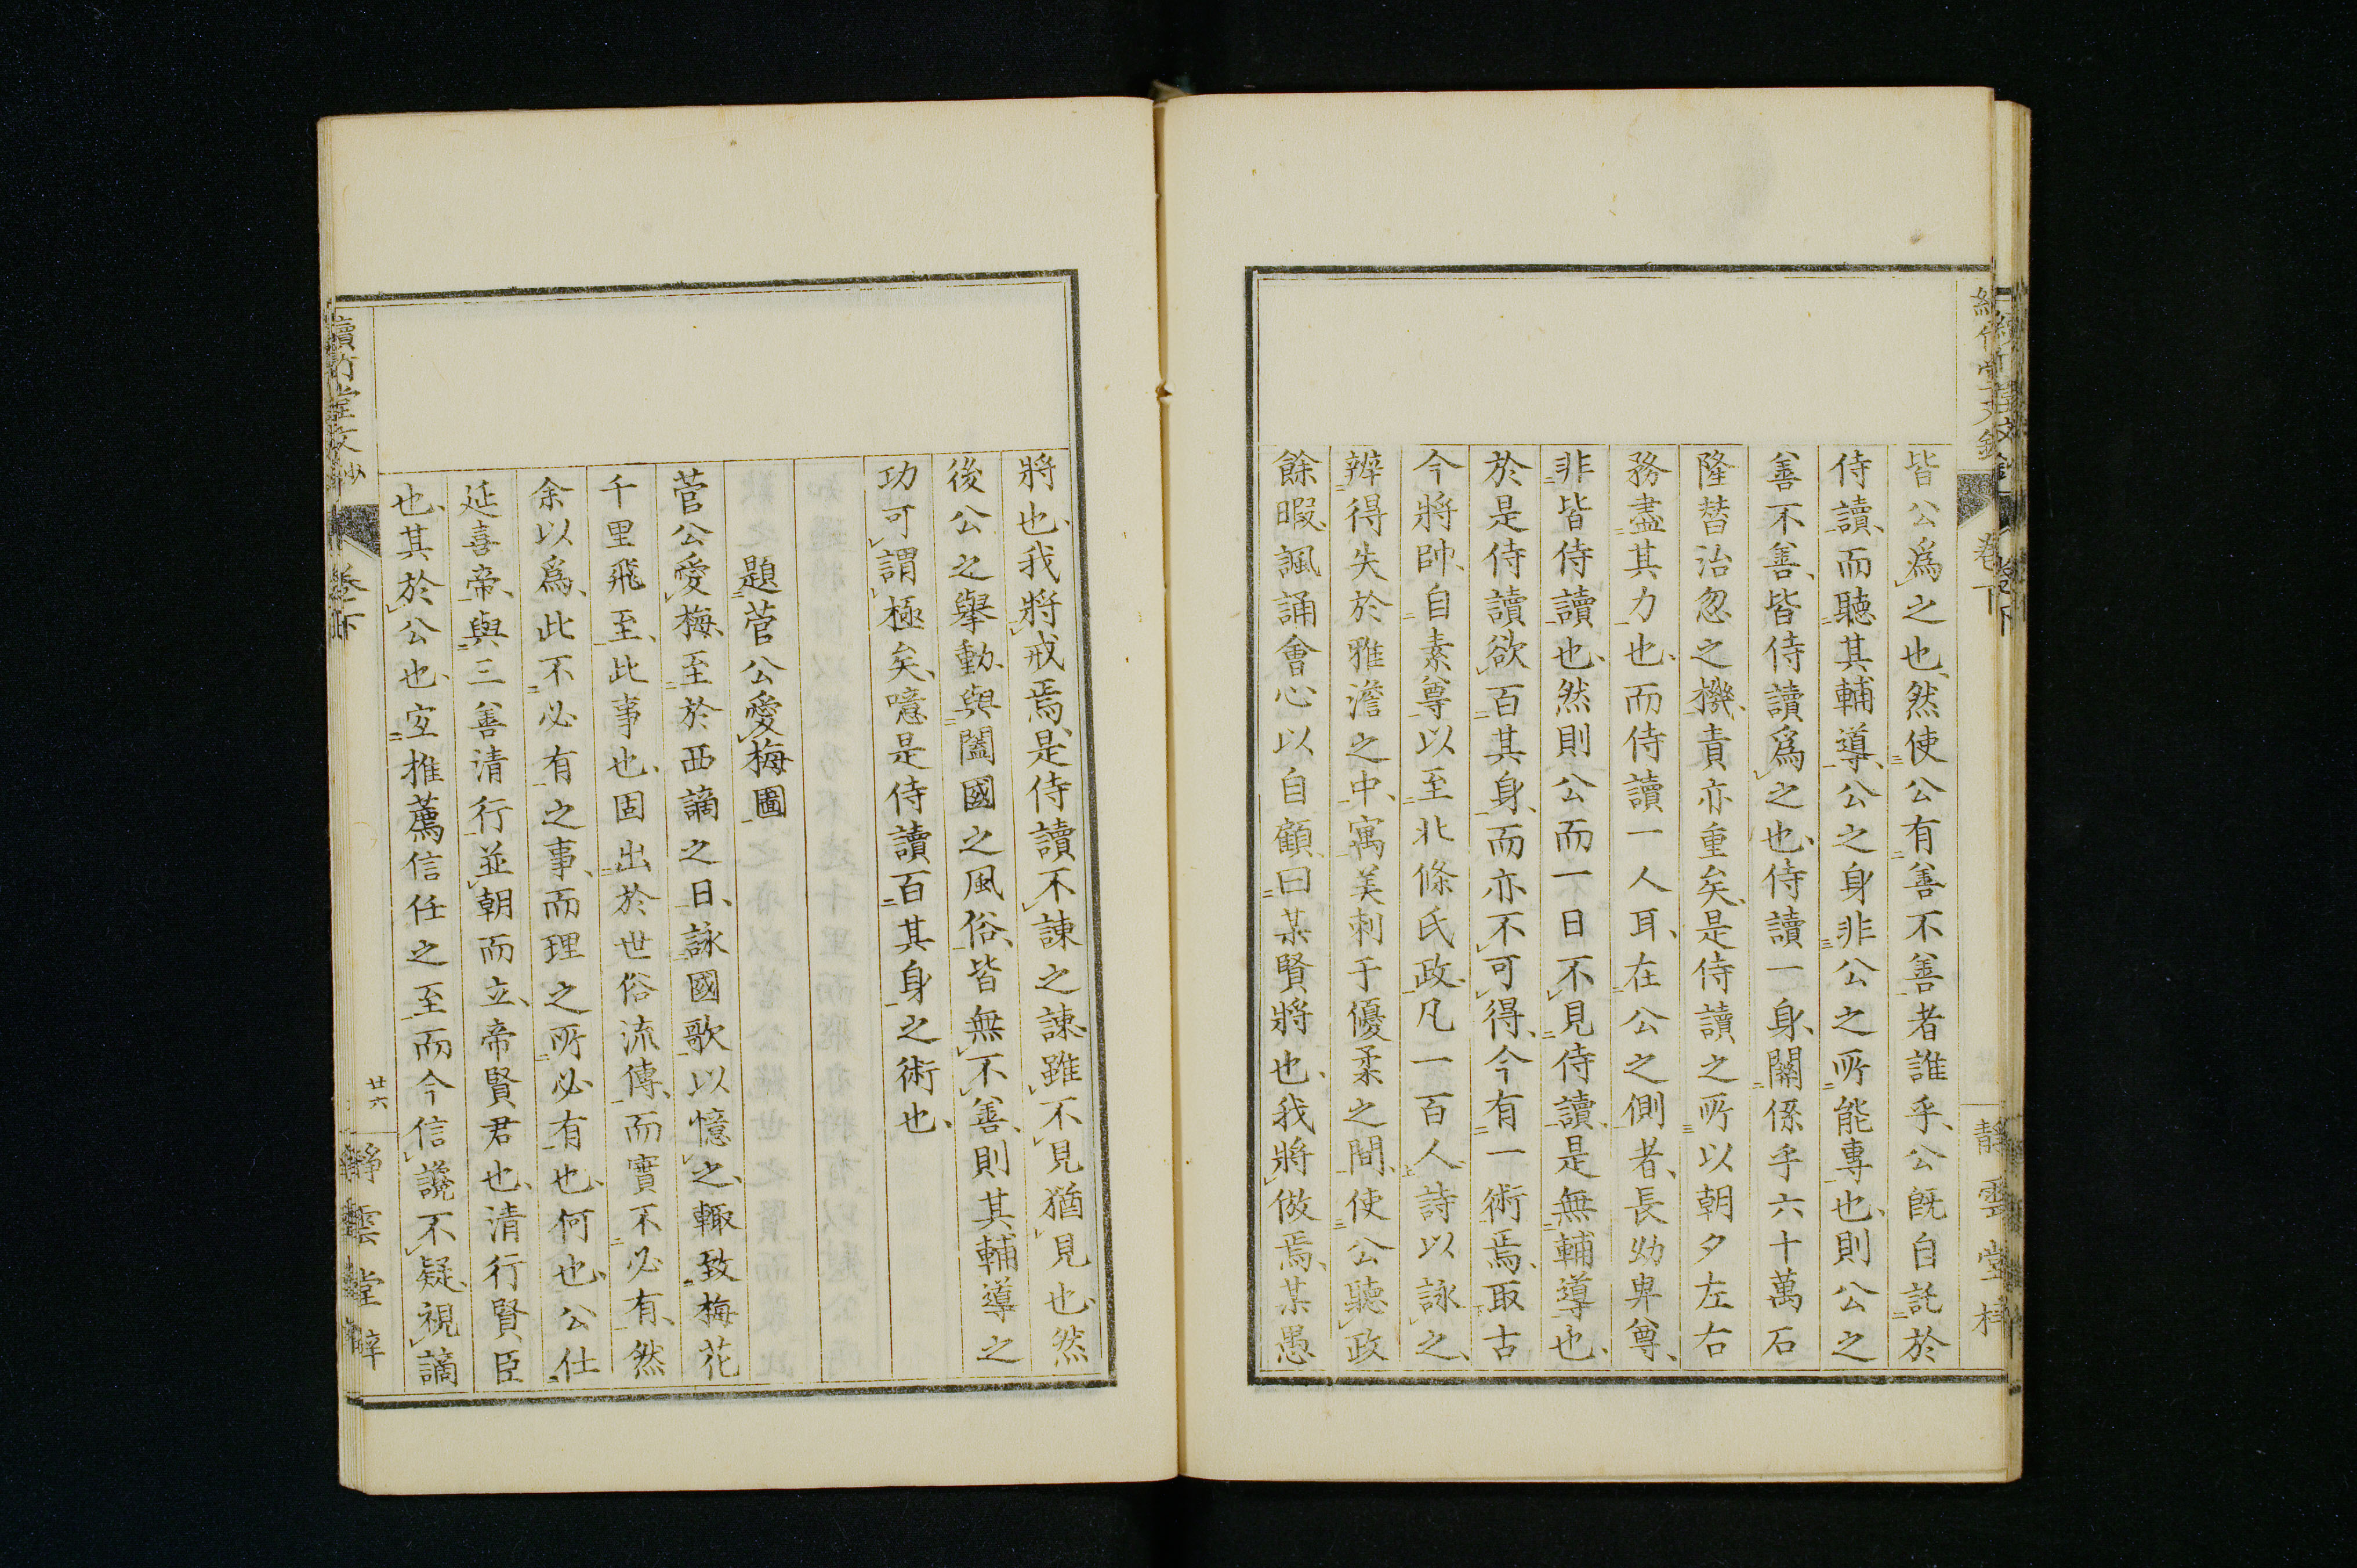 皆公爲之也、然使公有善不善者誰乎、公既自託於
侍讀、而聽其輔導、公之身非公之所能專也、則公之
善不善、皆侍讀爲之也、侍讀一身、關係乎六十萬石
隆替治忽之機、責亦重矣、是侍讀之所以朝夕左右
務盡其力也、而侍讀一人耳、在公之側者、長幼卑尊、
非皆侍讀也、然則公而一日不見侍讀、是無輔導也、
於是侍讀欲百其身、而亦不可得、今有一術焉、取古
今將帥、自素尊以至北條氏政、凡一百人、詩以詠之、
辨得失於雅澹之中、寓美刺于優柔之間、使公聽政
餘暇、諷誦會心以自顧、曰某賢將也、我將倣焉、某愚
將也、我將戒焉、是侍讀不諫之諫、雖不見猶見也、然
後公之舉動、與闔國之風俗、皆無不善、則其輔導之
功可謂極矣、噫是侍讀百其身之術也、
題菅公愛梅圖
菅公愛梅、至於西謫之日、詠國歌以憶之、輙致梅花
千里飛至、此事也、固出於世俗流傳、而實不必有、然
余以爲、此不必有之事、而理之所必有也、何也、公仕
延喜帝、與三善清行並朝而立、帝賢君也、清行賢臣
也、其於公也、宜推薦信任之至、而今信讒不疑、視謫
續竹堂文鈔
卷下
廿六
靜雲堂